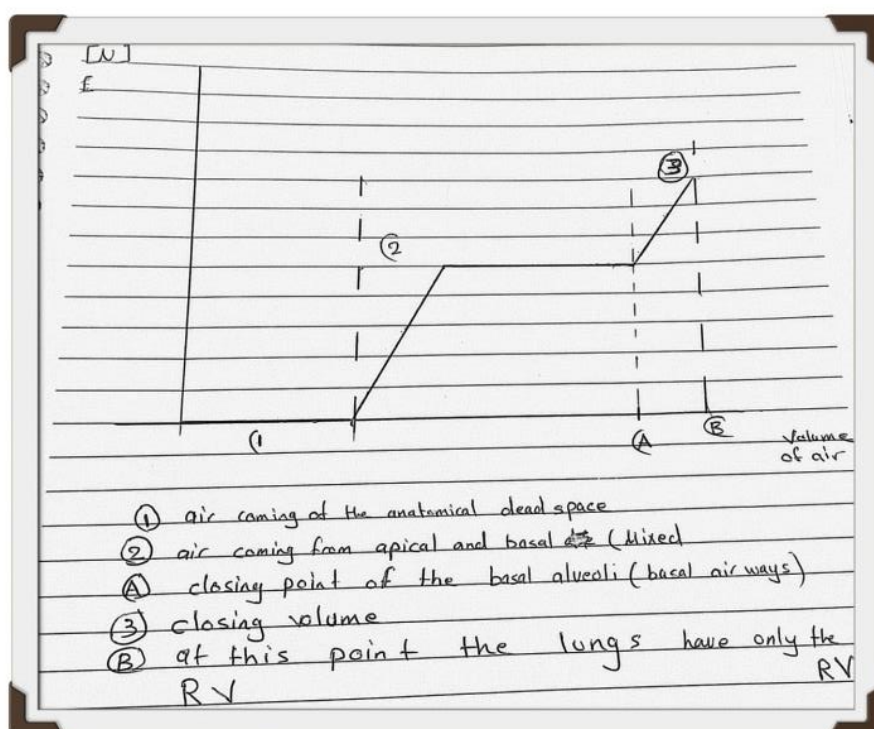 [N]
E
3
2
1
A
B
Volume
of air
1 air coming of the anatomical dead space
2 air coming from apical and basal (Mixed
A closing point of the basal alveoli (basal air ways)
3 closing volume
B at this point the lungs have only the
RV
RV